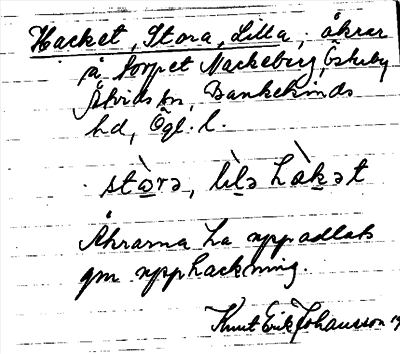 Hacket, Stora, Lilla, åkrar
å torpet Nackeberg, Öskeby
Åtvids sn, Bankekinds
hd, Ögl. l.
stòrə, lìlə hàkət
Åkrarna ha uppodlats
gm upphackning.
Knut Erik Johansson